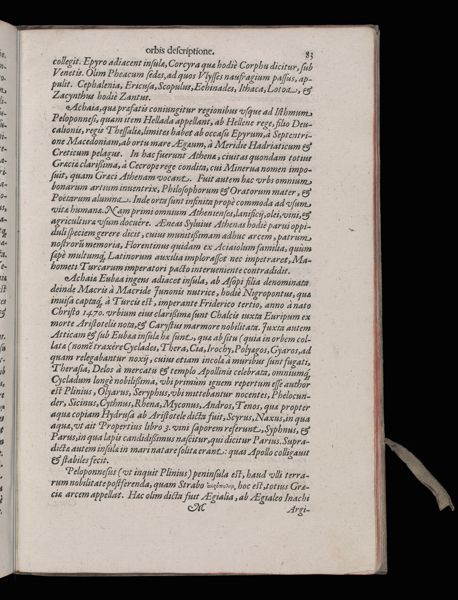 orbis descriptione. 83
collegit. Epyro adiacent insulæ, Corcyra quæ hodiè Corphu dicitur, sub
Venetis. Olim Pheacum sedes, ad quos Vlysses naufragium passus, ap-
pulit. Cephalenia, Ericusa, Scopulus, Echinades, Ithaca, Lotoa, &
Zacynthus hodiè Zantus.
Achaia, quæ præfatis coniungitur regionibus vsque ad Isthmum
Peloponnesi, quam item Hellada appellant, ab Hellene rege, filio Deu-
calionis, regis Thessaliæ, limites habet ab occasu Epyrum, à Septentri-
one Macedoniam, ab ortu mare Ægæum, à Meridie Hadriaticum &
Creticum pelagus. In hac fuerunt Athenæ, ciuitas quondam totius
Græciæ clarissima, à Cecrope rege condita, cui Minerua nomen impo-
suit, quam Græci Athenam vocant. Fuit autem hæc vrbs omnium
bonarum artium inuentrix, Philosophorum & Oratorum mater, &
Poëtarum alumna. Inde ortu sunt infinita propè commoda ad vsum
vitæ humanæ. Nam primi omnium Athenienses, lanificij, olei, vini, &
agriculturæ vsum docuêre. Æneas Syluius Athenas hodiè parui oppi-
duli speciem gerere dicit, cuius munitissimam adhuc arcem, patrum
nostrorũ memoria, Florentinus quidam ex Aciaiolum familia, quum
sæpè multumq́; Latinorum auxilia implorasset nec impetraret, Ma-
hometi Turcarum imperatori pacto interueniente contradidit.
Achaiæ Eubæa ingens adiacet insula, ab Asopi filia denominata
deinde Macris à Macride Iunonis nutrice, hodiè Nigropontus, quæ
inuisa captaq́; à Turcis est, imperante Friderico tertio, anno à nato
Christo 1470. vrbium eius clarissima sunt Chalcis iuxta Euripum ex
morte Aristotelis nota, & Carystus marmore nobilitata. Iuxta autem
Atticam & sub Eubæa insulæ hæ sunt, quæ ab situ (quia in orbem col-
latæ) nomẽ traxêre Cyclades, Thera, Cia, Irochy, Polyagos, Gyaros, ad
quam relegabantur noxij, cuius etiam incolæ à muribus sunt fugati,
Therasia, Delos à mercatu & templo Apollinis celebrata, omniumq́;
Cycladum longè nobilissima, vbi primùm ignem repertum esse author
est Plinius, Olyarus, Seryphus, vbi mittebantur nocentes, Pholocun-
der, Sicinus, Cythnus, Rhena, Myconus, Andros, Tenos, quæ propter
aquæ copiam Hydrusa ab Aristotele dicta fuit, Scyrus, Naxus, in qua
aqua, vt ait Propertius libro 3. vini saporem referunt, Syphnus, &
Parus, in qua lapis candidissimus nascitur, qui dicitur Parius. Supra-
dictæ autem insulæ in mari natare solitæ erant: quas Apollo colligauit
& stabiles fecit.
Peloponnesus (vt inquit Plinius) peninsula est, haud vlli terra-
rum nobilitate postferenda, quam Strabo hoc est, totius Græ-
ciæ arcem appellat. Hæc olim dicta fuit Ægialia, ab Ægialeo Inachi
M Argi-